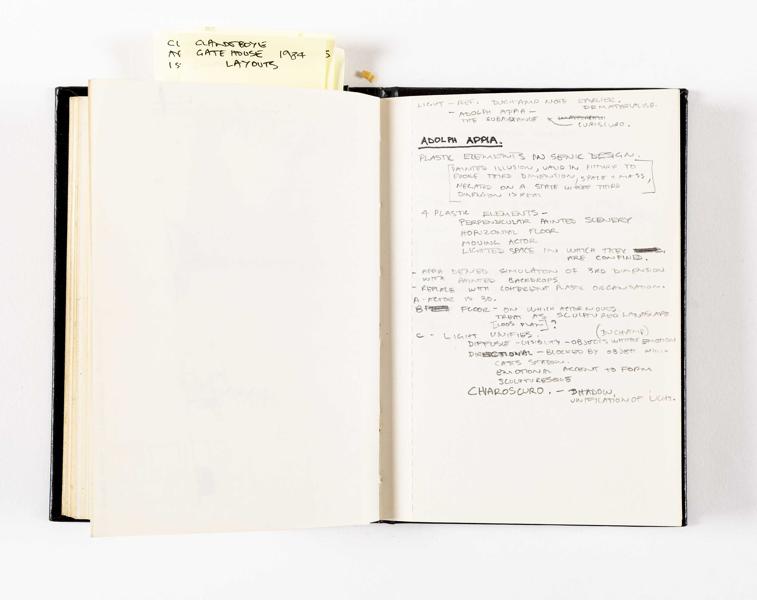 CL CLANDEBOYE
AV GATE HOUSE 1984 5
IS LAYOUTS
LIGHT - REF. DUCHAMP NOTE EARLIER.
- ADOLPH APPIA - DEMATERIALISE.
THE SUBSTANCE
CURISCURO.
ADOLPH APPIA.
PLASTIC ELEMENTS IN SCENIC DESIGN.
PAINTED ILLUSION, VALID IN PICTURE TO
EVOKE THIRD DIMENSION, SPACE + MASS,
NEGATED ON A STAGE WHERE THIRD
DIMENSION IS REAL
4 PLASTIC ELEMENTS -
PERPENDICULAR PAINTED SCENERY
HORIZONTAL FLOOR
MOVING ACTOR
LIGHTED SPACE IN WHICH THEY
ARE CONFINED.
- APPIA DENIED SIMULATION OF 3RD DIMENSION
WITH PAINTED BACKDROPS
- REPLACE WITH COHERENT PLASTIC ORGANISATION.
A - ACTOR IS 3D.
B FLOOR - ON WHICH ACTOR MOVES
TREAT AS SCULPTURED LANDSCAPE
[LOOS PLAN]?
C - LIGHT UNIFIES. (DUCHAMP)
DIFFUSE - VISIBLITY - OBJECTS WITHOUT EMOTION
DIRECTIONAL - BLOCKED BY OBJECT WHICH
CASTS SHADOW.
EMOTIONAL ACCENT TO FORM
SCULPTURESQUE
CHIAROSCURO. - SHADOW,
UNIFICATION OF LIGHT.